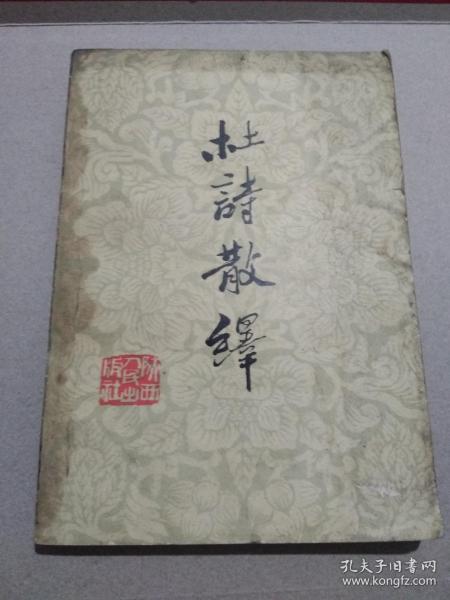 杜詩散繹
陕西
人民出
版社
孔夫子旧书网
www.kongfz.com